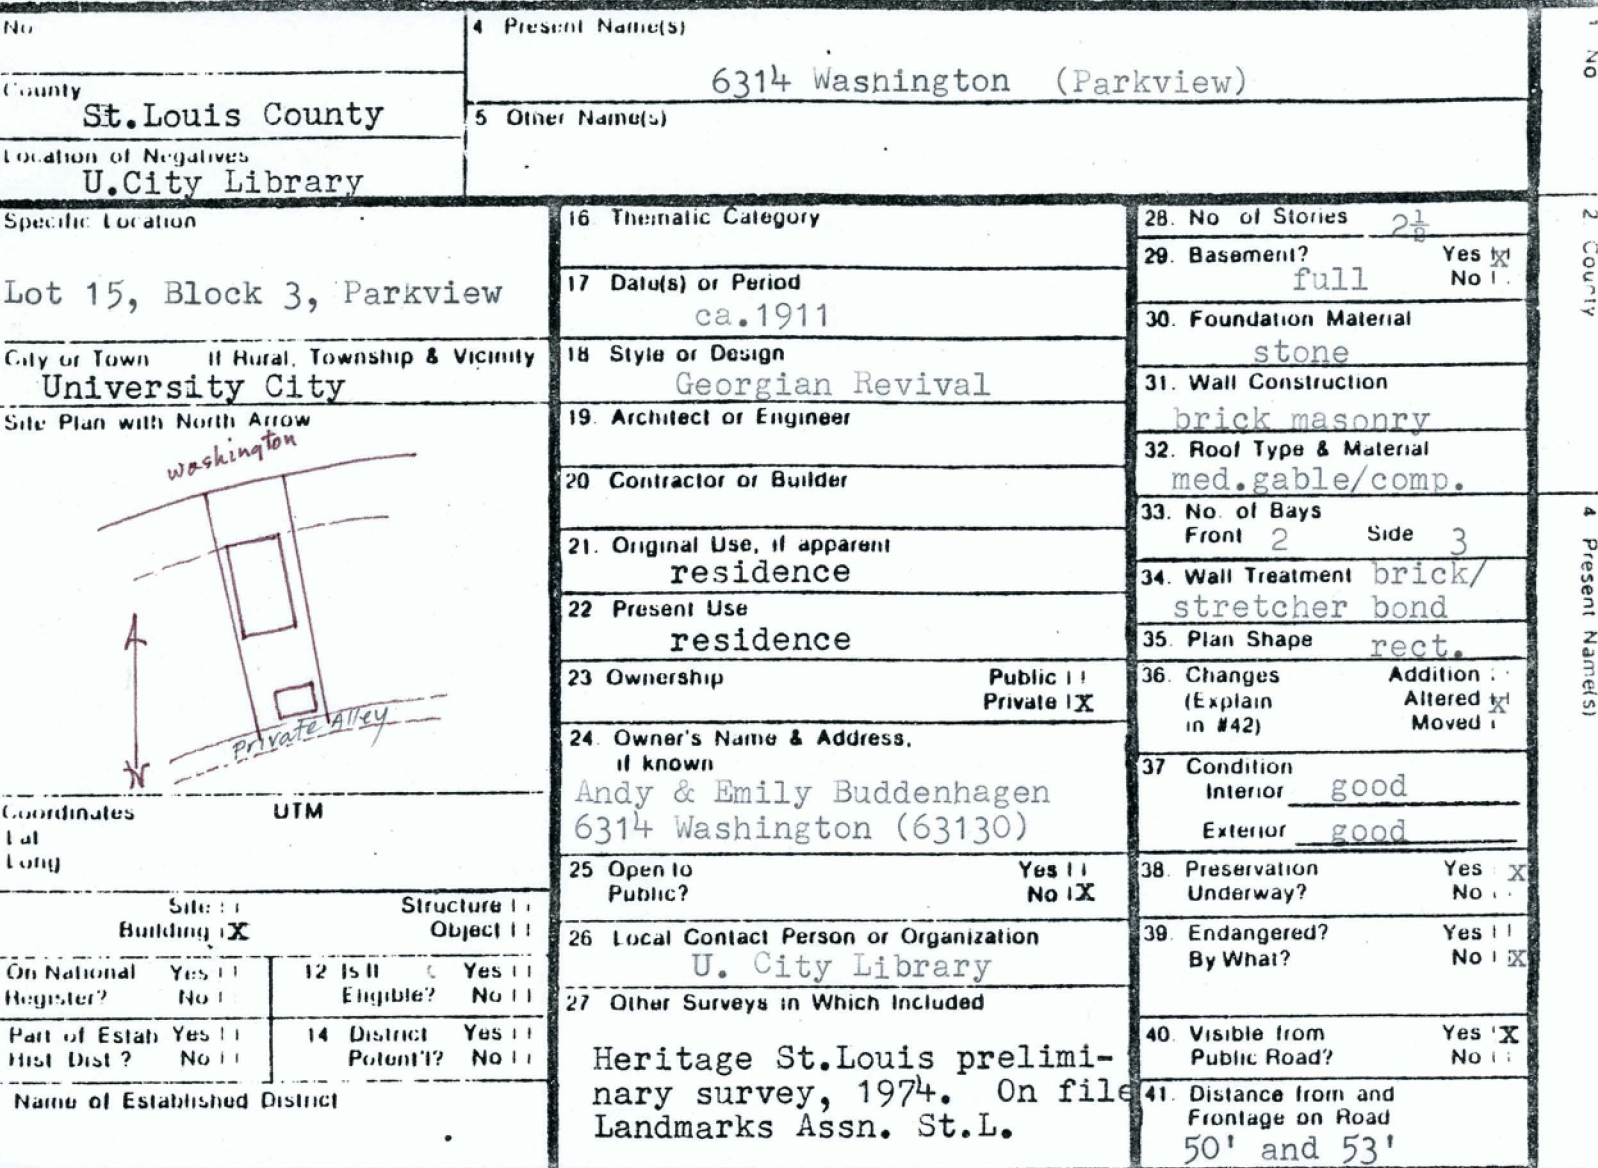 No
County
St.Louis County
Location of Negatives
U.City Library
4 Present Name(s)
6314 Washington (Parkview)
5 Other Name(s)
Specific Location
Lot 15, Block 3, Parkview
City or Town If Rural, Township & Vicinity
University City
Site Plan with North Arrow
Washington
Private Alley
N
Coordinates UTM
Lat
Long
Site Structure
Building X Object
On National Yes
Register? No
12 Is It Yes
Eligible? No
Part of Estab Yes
Hist Dist? No
14 District Yes
Potent'l? No
Name of Established District
16. Thematic Category
17 Date(s) or Period
ca.1911
18 Style or Design
Georgian Revival
19. Architect or Engineer
20 Contractor or Builder
21. Original Use, if apparent
residence
22 Present Use
residence
23 Ownership Public
Private X
24. Owner's Name & Address,
if known
Andy & Emily Buddenhagen
6314 Washington (63130)
25 Open to Yes
Public? No X
26 Local Contact Person or Organization
U. City Library
27 Other Surveys in Which Included
Heritage St.Louis prelimi-
nary survey, 1974. On file
Landmarks Assn. St.L.
28. No of Stories 2½
29. Basement? Yes X
full No
30. Foundation Material
stone
31. Wall Construction
brick masonry
32. Roof Type & Material
med.gable/comp.
33. No. of Bays
Front 2 Side 3
34. Wall Treatment brick/
stretcher bond
35. Plan Shape rect.
36. Changes Addition
(Explain Altered X
in #42) Moved
37 Condition
Interior good
Exterior good
38. Preservation Yes X
Underway? No
39. Endangered? Yes
By What? No X
40. Visible from Yes X
Public Road? No
41. Distance from and
Frontage on Road
50' and 53'
1 No
2 County
4 Present Name(s)